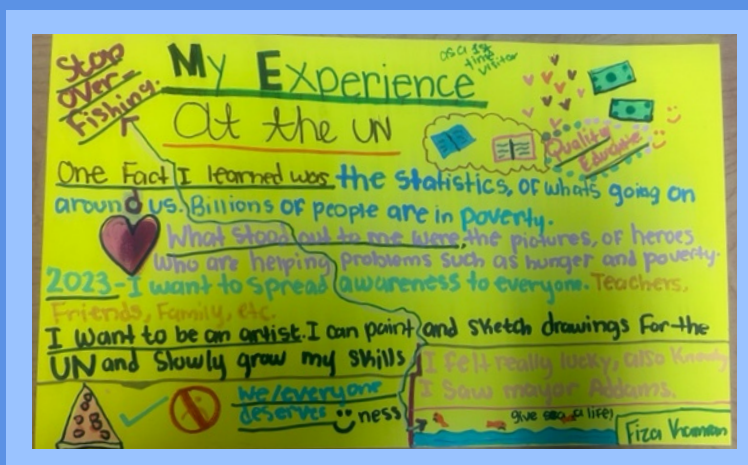 Stop
over-
Fishing.
My Experience
as a 1st
time
visitor
at the UN
Quality
Educate
One Fact I learned was the statistics, of whats going on
around us. Billions of people are in poverty.
What stood out to me were the pictures, of heroes
who are helping problems such as hunger and poverty.
2023-I want to spread awareness to everyone. Teachers,
Friends, Family, etc.
I want to be an artist. I can paint and sketch drawings for the
UN and slowly grow my skills
I felt really lucky, also
I saw mayor Addams.
We/everyone
deserves
ness
give sea a life!
Fiza